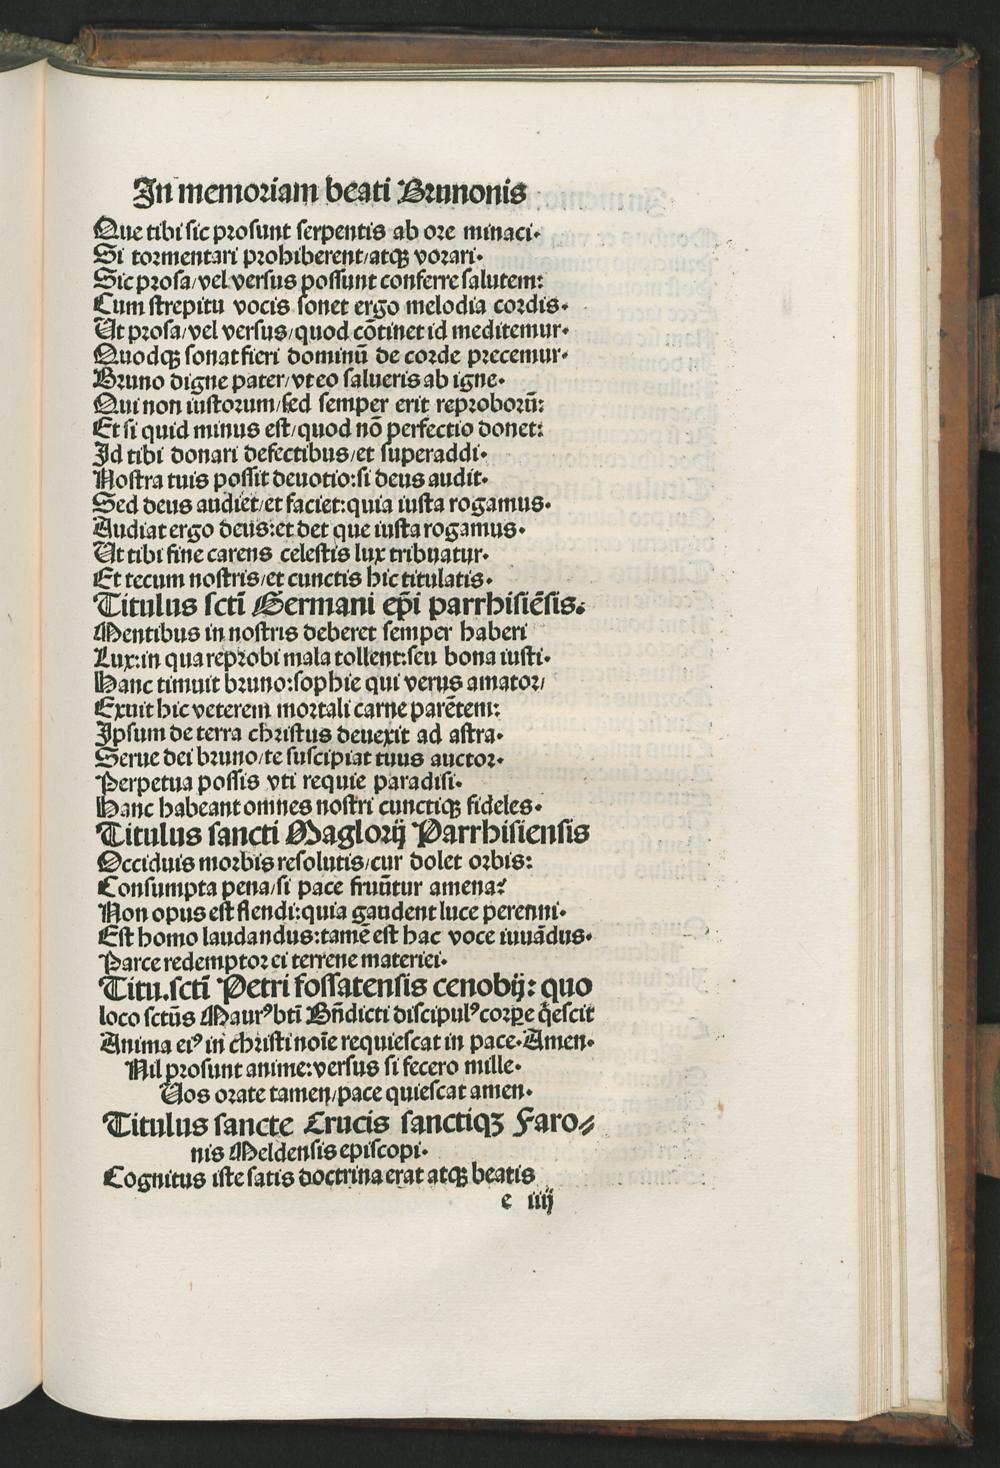 In memoriam beati Brunonis
Que tibi sic prosunt serpentis ab ore minaci.
Si tormentari prohiberent/atqꝫ vorari.
Sic prosa/vel versus possunt conferre salutem:
Cum strepitu vocis sonet ergo melodia cordis.
Ut prosa/vel versus/quod cōtinet id meditemur.
Quodqꝫ sonat fieri dominū de corde precemur.
Bruno digne pater/vt eo salueris ab igne.
Qui non iustorum/sed semper erit reproborū:
Et si quid minus est/quod nō perfectio donet:
Id tibi donari defectibus/et superaddi.
Nostra tuis possit deuotio:si deus audit.
Sed deus audiet/et faciet:quia iusta rogamus.
Audiat ergo deus:et det que iusta rogamus.
Ut tibi fine carens celestis lux tribuatur.
Et tecum nostris/et cunctis hic titulatis.
Titulus sctī Germani ep̄i parrhisiēsis.
Mentibus in nostris deberet semper haberi
Lux:in qua reprobi mala tollent:seu bona iusti.
Hanc timuit bruno:sophie qui verus amator/
Exuit hic veterem mortali carne parētem:
Ipsum de terra christus deuexit ad astra.
Serue dei bruno/te suscipiat tuus auctor.
Perpetua possis vti requie paradisi.
Hanc habeant omnes nostri cunctiqꝫ fideles.
Titulus sancti Maglorij Parrhisiensis
Occiduis morbis resolutis/cur dolet orbis:
Consumpta pena/si pace fruūtur amena?
Non opus est flendi:quia gaudent luce perenni.
Est homo laudandus:tamē est hac voce iuuādus.
Parce redemptor ei terrene materiei.
Titu.sctī Petri fossatensis cenobij: quo
loco sctūs Maurꝰ btī Bn̄dicti discipulꝰ corꝑe q̄escit
Anima eiꝰ in christi noīe requiescat in pace.Amen.
Nil prosunt anime:versus si fecero mille.
Uos orate tamen/pace quiescat amen.
Titulus sancte Crucis sanctiqꝫ Faro⸗
nis Meldensis episcopi.
Cognitus iste satis doctrina erat atqꝫ beatis
e iiij